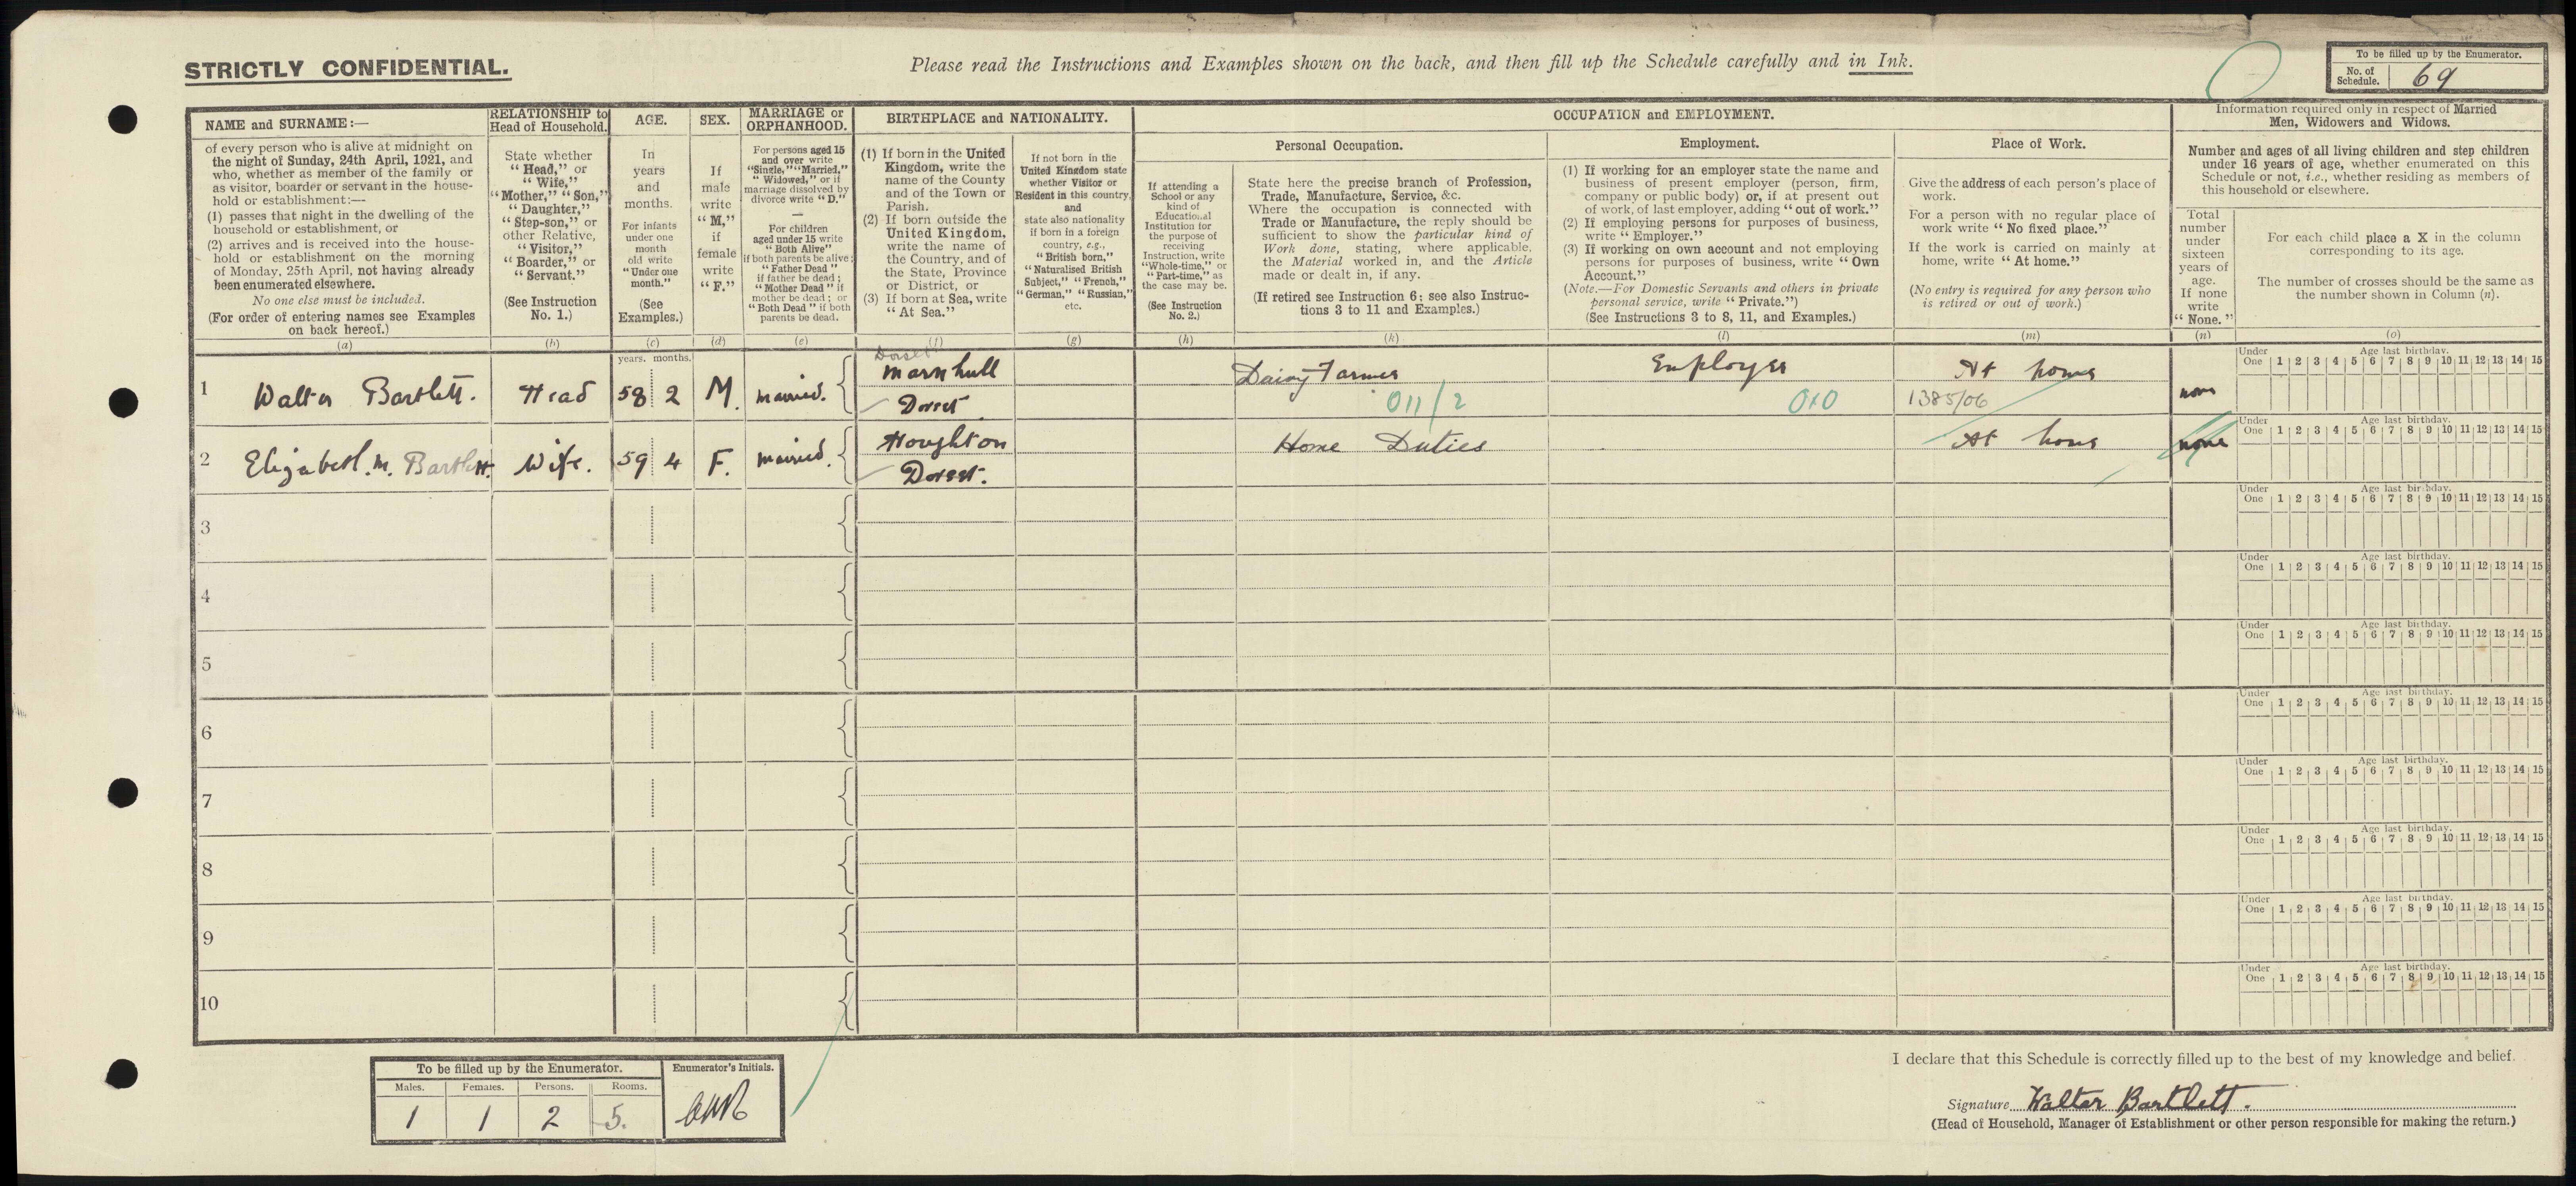 STRICTLY CONFIDENTIAL.
Please read the Instructions and Examples shown on the back, and then fill up the Schedule carefully and in Ink.
To be filled up by the Enumerator.
No. of Schedule. 69
NAME and SURNAME:—
of every person who is alive at midnight on
the night of Sunday, 24th April, 1921, and
who, whether as member of the family or
as visitor, boarder or servant in the house-
hold or establishment:—
(1) passes that night in the dwelling of the
household or establishment, or
(2) arrives and is received into the house-
hold or establishment on the morning
of Monday, 25th April, not having already
been enumerated elsewhere.
No one else must be included.
(For order of entering names see Examples
on back hereof.)
(a)
RELATIONSHIP to
Head of Household.
State whether
"Head," or
"Wife,"
"Mother," "Son,"
"Daughter,"
"Step-son," or
other Relative,
"Visitor,"
"Boarder," or
"Servant."
(See Instruction
No. 1.)
(b)
AGE.
In
years
and
months.
For infants
under one
month
old write
"Under one
month."
(See
Examples.)
(c)
SEX.
If
male
write
"M,"
if
female
write
"F."
(d)
MARRIAGE or
ORPHANHOOD.
For persons aged 15
and over write
"Single," "Married,"
"Widowed," or if
marriage dissolved by
divorce write "D."
—
For children
aged under 15 write
"Both Alive"
if both parents be alive;
"Father Dead"
if father be dead;
"Mother Dead" if
mother be dead; or
"Both Dead" if both
parents be dead.
(e)
BIRTHPLACE and NATIONALITY.
(1) If born in the United
Kingdom, write the
name of the County
and of the Town or
Parish.
(2) If born outside the
United Kingdom,
write the name of
the Country, and of
the State, Province
or District, or
(3) If born at Sea, write
"At Sea."
(f)
If not born in the
United Kingdom state
whether Visitor or
Resident in this country,
and
state also nationality
if born in a foreign
country, e.g.,
"British born,"
"Naturalised British
Subject," "French,"
"German," "Russian,"
etc.
(g)
OCCUPATION and EMPLOYMENT.
If attending a
School or any
kind of
Educational
Institution for
the purpose of
receiving
Instruction, write
"Whole-time," or
"Part-time," as
the case may be.
(See Instruction
No. 2.)
(h)
Personal Occupation.
State here the precise branch of Profession,
Trade, Manufacture, Service, &c.
Where the occupation is connected with
Trade or Manufacture, the reply should be
sufficient to show the particular kind of
Work done, stating, where applicable,
the Material worked in, and the Article
made or dealt in, if any.
(If retired see Instruction 6; see also Instruc-
tions 3 to 11 and Examples.)
(k)
Employment.
(1) If working for an employer state the name and
business of present employer (person, firm,
company or public body) or, if at present out
of work, of last employer, adding "out of work."
(2) If employing persons for purposes of business,
write "Employer."
(3) If working on own account and not employing
persons for purposes of business, write "Own
Account."
(Note.—For Domestic Servants and others in private
personal service, write "Private.")
(See Instructions 3 to 8, 11, and Examples.)
(l)
Place of Work.
Give the address of each person's place of
work.
For a person with no regular place of
work write "No fixed place."
If the work is carried on mainly at
home, write "At home."
(No entry is required for any person who
is retired or out of work.)
(m)
Information required only in respect of Married
Men, Widowers and Widows.
Number and ages of all living children and step children
under 16 years of age, whether enumerated on this
Schedule or not, i.e., whether residing as members of
this household or elsewhere.
Total
number
under
sixteen
years of
age.
If none
write
"None."
(n)
For each child place a X in the column
corresponding to its age.
The number of crosses should be the same as
the number shown in Column (n).
(o)
years. months.
1 Walter Bartlett. Head 58 2 M. Married. Dorset Marnhull Dorset Dairy Farmer 011/2 Employer 0x0 At home 1385/06 none
Under One Age last birthday. 1 2 3 4 5 6 7 8 9 10 11 12 13 14 15
2 Elizabeth. M. Bartlett. Wife. 59 4 F. Married. Houghton Dorset. Home Duties At home none
Under One Age last birthday. 1 2 3 4 5 6 7 8 9 10 11 12 13 14 15
3
Under One Age last birthday. 1 2 3 4 5 6 7 8 9 10 11 12 13 14 15
4
Under One Age last birthday. 1 2 3 4 5 6 7 8 9 10 11 12 13 14 15
5
Under One Age last birthday. 1 2 3 4 5 6 7 8 9 10 11 12 13 14 15
6
Under One Age last birthday. 1 2 3 4 5 6 7 8 9 10 11 12 13 14 15
7
Under One Age last birthday. 1 2 3 4 5 6 7 8 9 10 11 12 13 14 15
8
Under One Age last birthday. 1 2 3 4 5 6 7 8 9 10 11 12 13 14 15
9
Under One Age last birthday. 1 2 3 4 5 6 7 8 9 10 11 12 13 14 15
10
Under One Age last birthday. 1 2 3 4 5 6 7 8 9 10 11 12 13 14 15
To be filled up by the Enumerator.
Males. Females. Persons. Rooms.
1 1 2 5.
Enumerator's Initials.
I declare that this Schedule is correctly filled up to the best of my knowledge and belief.
Signature Walter Bartlett.
(Head of Household, Manager of Establishment or other person responsible for making the return.)